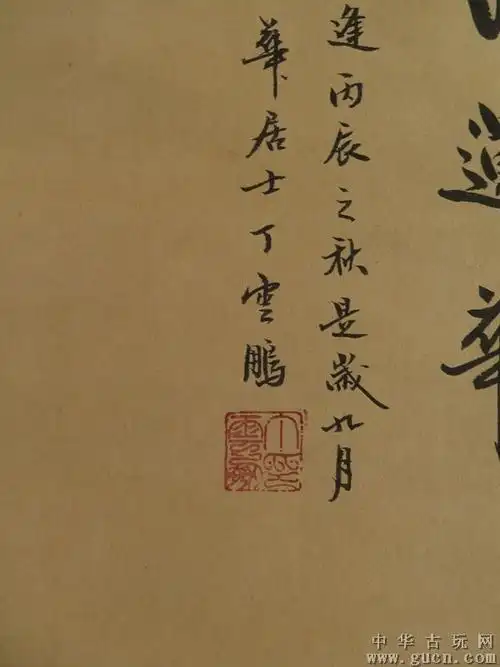 蓮華
逢丙辰之秋是歲九月
華居士丁雲鵬
中华古玩网
www.gucn.com